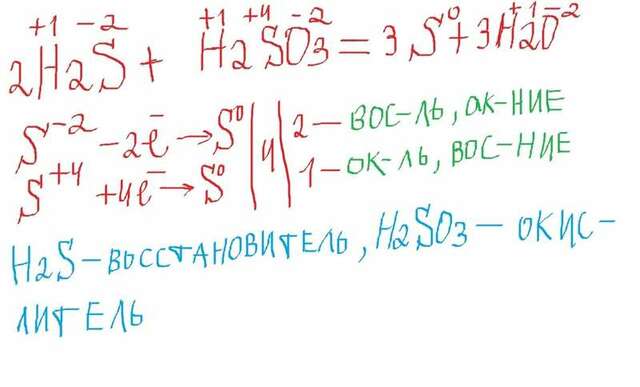 +1 -2 +1 +4 -2 0 +1 -2
2H2S + H2SO3 = 3S + 3H2O
S-2 -2e̅ → S0 | 4 | 2 — ВОС-ЛЬ, ОК-НИЕ
S+4 +4e̅ → S0 | | 1 — ОК-ЛЬ, ВОС-НИЕ
H2S – ВЫССТАНОВИТЕЛЬ, H2SO3 — ОКИС-
ЛИТЕЛЬ